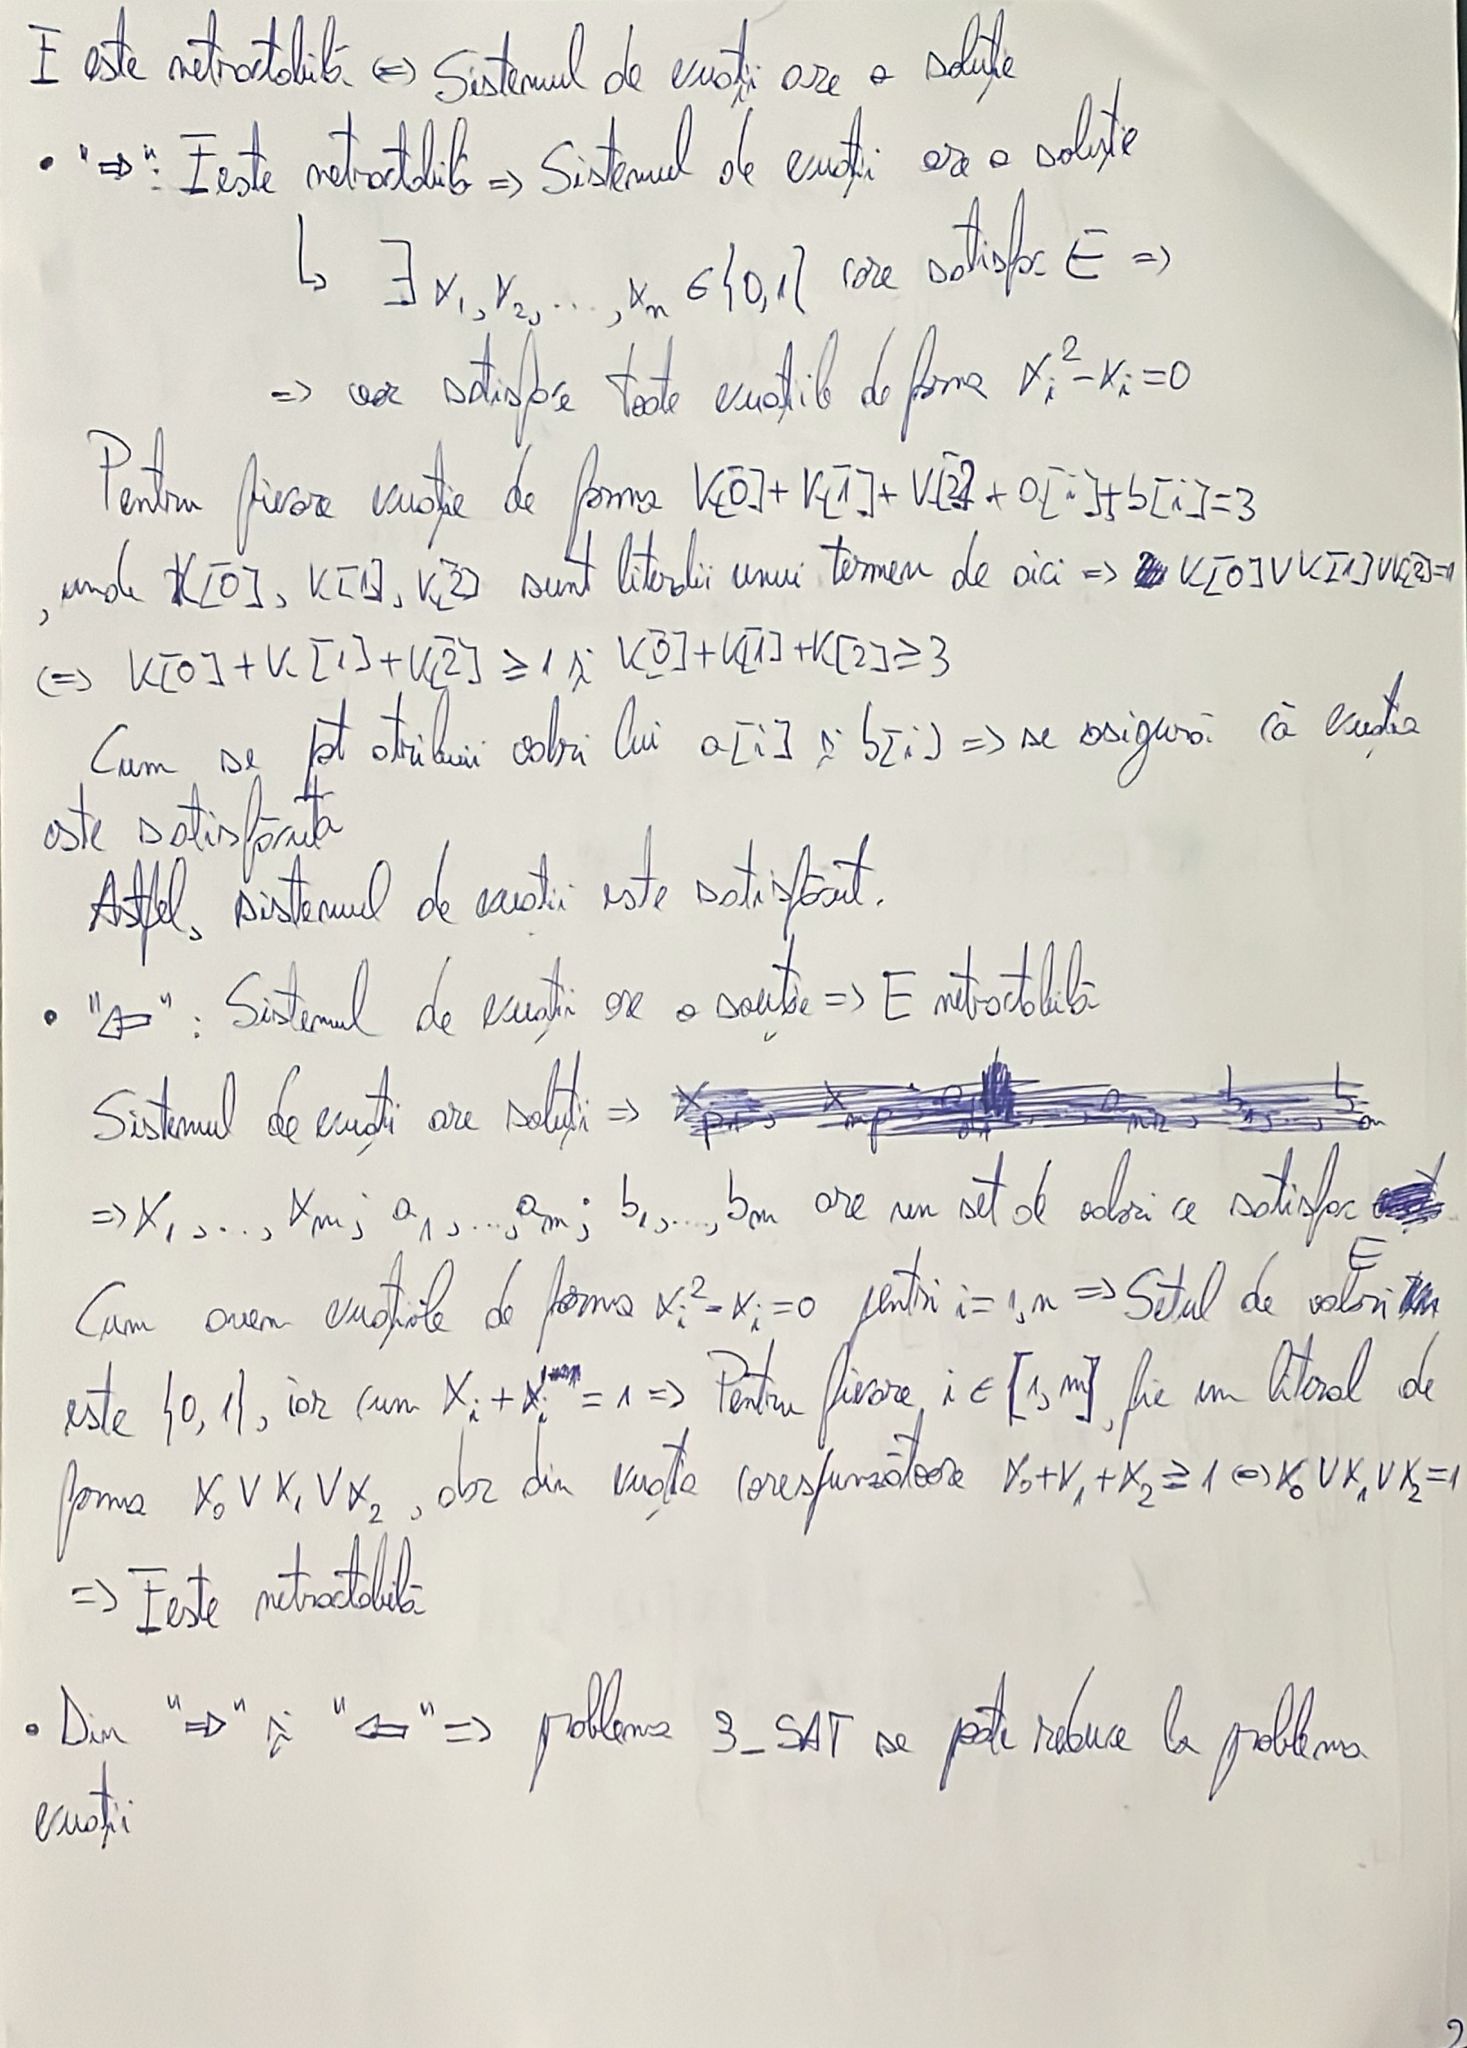 E este netractabilă <=> Sistemul de ecuații are o soluție
• "=>": E este netractabilă => Sistemul de ecuații are o soluție
↳ ∃ x₁, x₂, ..., xₙ ∈ {0,1} care satisfac E =>
=> vor satisface toate ecuațiile de forma xᵢ² - xᵢ = 0
Pentru fiecare ecuație de forma V[0] + V[1] + V[2] + a[i] + b[i] = 3
, unde K[0], K[1], K[2] sunt literalii unui termen de aici => K[0] ∨ K[1] ∨ K[2] = 1
<=> K[0] + K[1] + K[2] ≥ 1 și K[0] + K[1] + K[2] ≥ 3
Cum se pt atribui valori lui a[i] și b[i] => se asigură că ecuația
este satisfăcută
Astfel, sistemul de ecuații este satisfăcut.
• "<=": Sistemul de ecuații are o soluție => E netractabilă
Sistemul de ecuații are soluții =>
=> x₁, ..., xₘ; a₁, ..., aₘ; b₁, ..., bₘ are un set de valori ce satisfac
E
Cum avem ecuațiile de forma xᵢ² - xᵢ = 0 pentri i = 1,n => Setul de valori
este {0,1}, iar cum xᵢ + xᵢ = 1 => Pentru fiecare i ∈ [1,m], fie un literal de
forma x₀ ∨ x₁ ∨ x₂, dar din ecuația corespunzătoare x₀ + x₁ + x₂ ≥ 1 <=> x₀ ∨ x₁ ∨ x₂ = 1
=> E este netractabilă
• Din "=>" și "<=" => problema 3_SAT se poate reduce la problema
ecuații
2